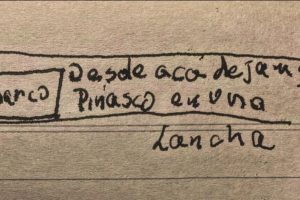 Desde acá dejams
Piñasco en una
Lancha